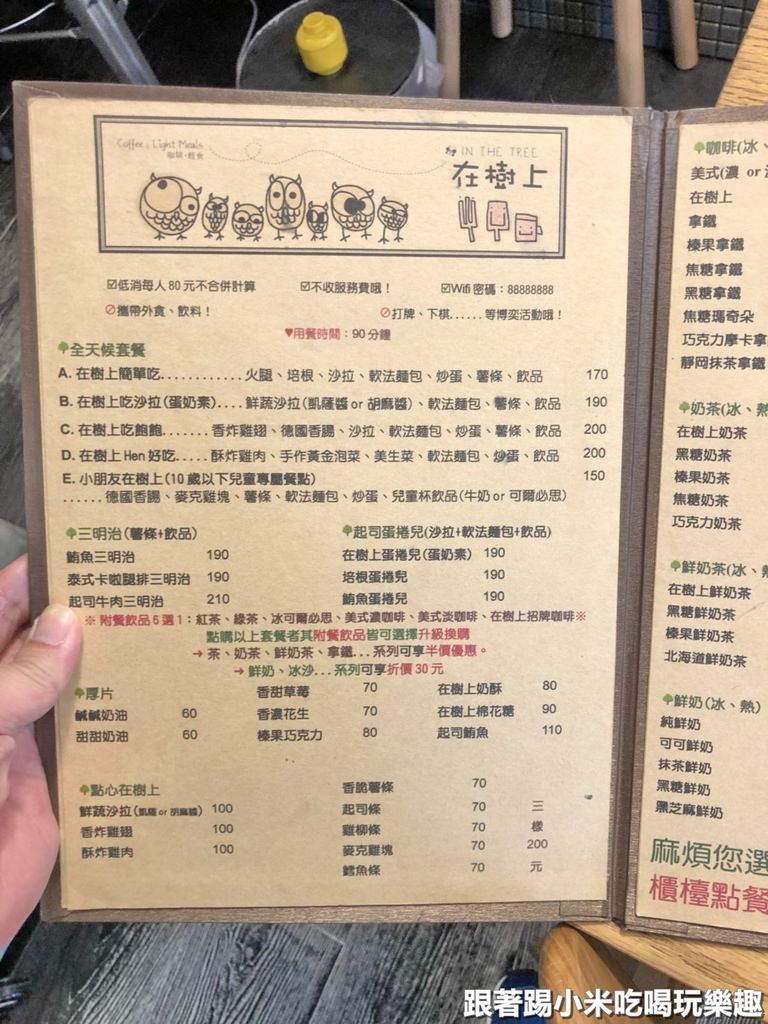 Coffee & Light Meals
咖啡・輕食
IN THE TREE
在樹上
☑低消每人80元不合併計算 ☑不收服務費哦! ☑Wifi密碼:88888888
⊘攜帶外食、飲料! ⊘打牌、下棋......等博奕活動哦!
♥用餐時間:90分鐘
全天候套餐
A. 在樹上簡單吃............火腿、培根、沙拉、軟法麵包、炒蛋、薯條、飲品 170
B. 在樹上吃沙拉(蛋奶素)....鮮蔬沙拉(凱薩醬or胡麻醬)、軟法麵包、薯條、飲品 190
C. 在樹上吃飽飽.......香炸雞翅、德國香腸、沙拉、軟法麵包、炒蛋、薯條、飲品 200
D. 在樹上Hen好吃.....酥炸雞肉、手作黃金泡菜、美生菜、軟法麵包、炒蛋、飲品 200
E. 小朋友在樹上(10歲以下兒童專屬餐點) 150
......德國香腸、麥克雞塊、薯條、軟法麵包、炒蛋、兒童杯飲品(牛奶or可爾必思)
三明治(薯條+飲品)
鮪魚三明治 190
泰式卡啦腿排三明治 190
起司牛肉三明治 210
起司蛋捲兒(沙拉+軟法麵包+飲品)
在樹上蛋捲兒(蛋奶素) 190
培根蛋捲兒 190
鮪魚蛋捲兒 190
※ 附餐飲品6選1:紅茶、綠茶、冰可爾必思、美式濃咖啡、美式淡咖啡、在樹上招牌咖啡※
點購以上套餐者其附餐飲品皆可選擇升級換購
→ 茶、奶茶、鮮奶茶、拿鐵...系列可享半價優惠。
→ 鮮奶、冰沙...系列可享折價30元
厚片
鹹鹹奶油 60
甜甜奶油 60
香甜草莓 70
香濃花生 70
榛果巧克力 80
在樹上奶酥 80
在樹上棉花糖 90
起司鮪魚 110
點心在樹上
鮮蔬沙拉(凱薩or胡麻醬) 100
香炸雞翅 100
酥炸雞肉 100
香脆薯條 70
起司條 70
雞柳條 70
麥克雞塊 70
鱈魚條 70
三
樣
200
元
咖啡(冰、
美式(濃 or
在樹上
拿鐵
榛果拿鐵
焦糖拿鐵
黑糖拿鐵
焦糖瑪奇朵
巧克力摩卡拿
靜岡抹茶拿鐵
奶茶(冰、
在樹上奶茶
黑糖奶茶
榛果奶茶
焦糖奶茶
巧克力奶茶
鮮奶茶(冰、
在樹上鮮奶茶
黑糖鮮奶茶
榛果鮮奶茶
北海道鮮奶茶
鮮奶(冰、熱)
純鮮奶
可可鮮奶
抹茶鮮奶
黑糖鮮奶
黑芝麻鮮奶
麻煩您選
櫃檯點餐
跟著踢小米吃喝玩樂趣